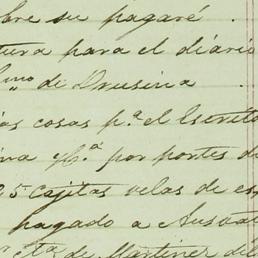 bre su pagaré
tura para el diario
mo di Drusina
ias cosas p.a el Escrito
ina y C.a por portes d
25 cajitas velas de es
pagado a Austa
cta de Martinez del